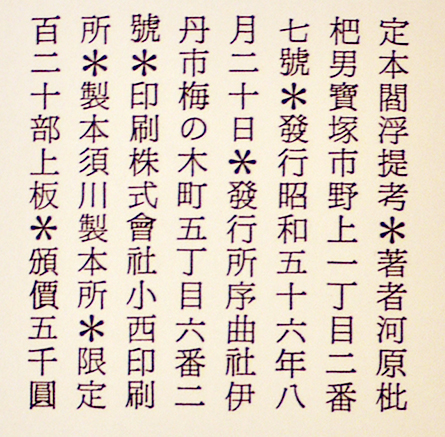 定本閻浮提考＊著者河原枇
杷男寶塚市野上一丁目二番
七號＊發行昭和五十六年八
月二十日＊發行所序曲社伊
丹市梅の木町五丁目六番二
號＊印刷株式會社小西印刷
所＊製本須川製本所＊限定
百二十部上板＊頒價五千圓